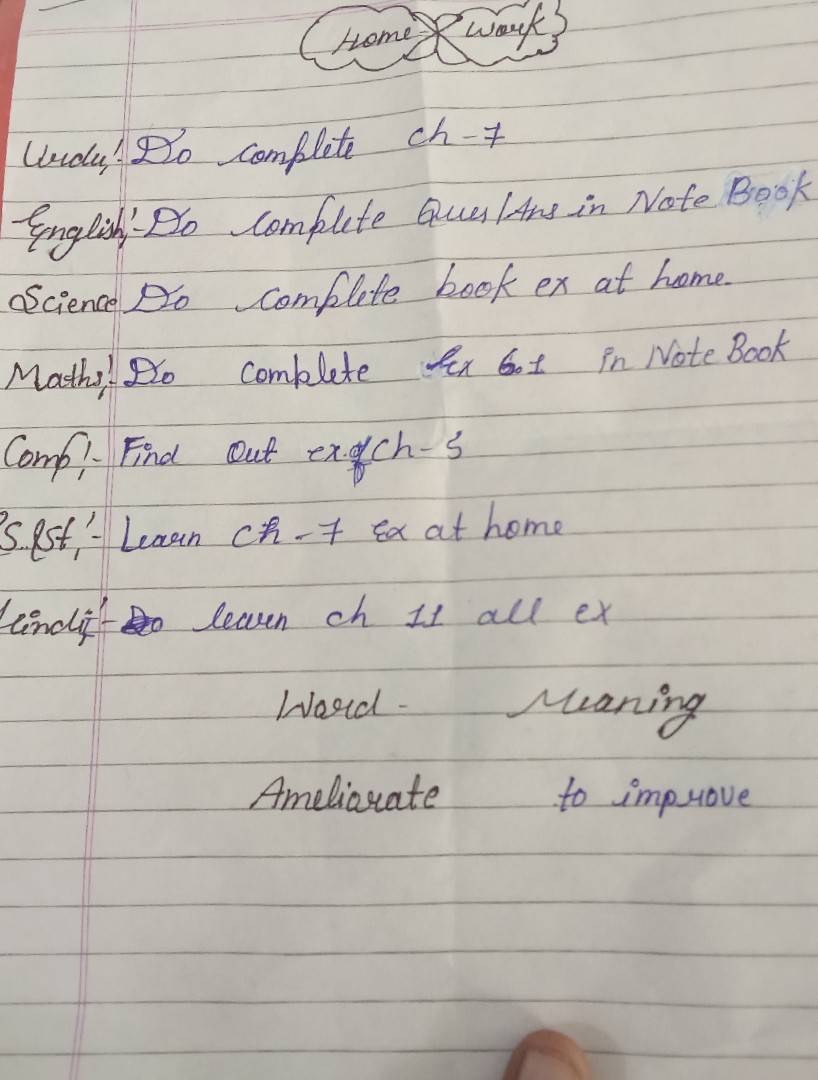 Home Work
Urdu:- Do complete ch-7
English:- Do complete Ques/Ans in Note Book
Science Do complete book ex at home.
Maths:- Do complete Ex 6.1 in Note Book
Comp:- Find Out ex. of Ch-5
S.St:- Learn Ch-7 Ex at home
Hindi:- Do learn ch 11 all ex
Word - Meaning
Ameliarate to improve